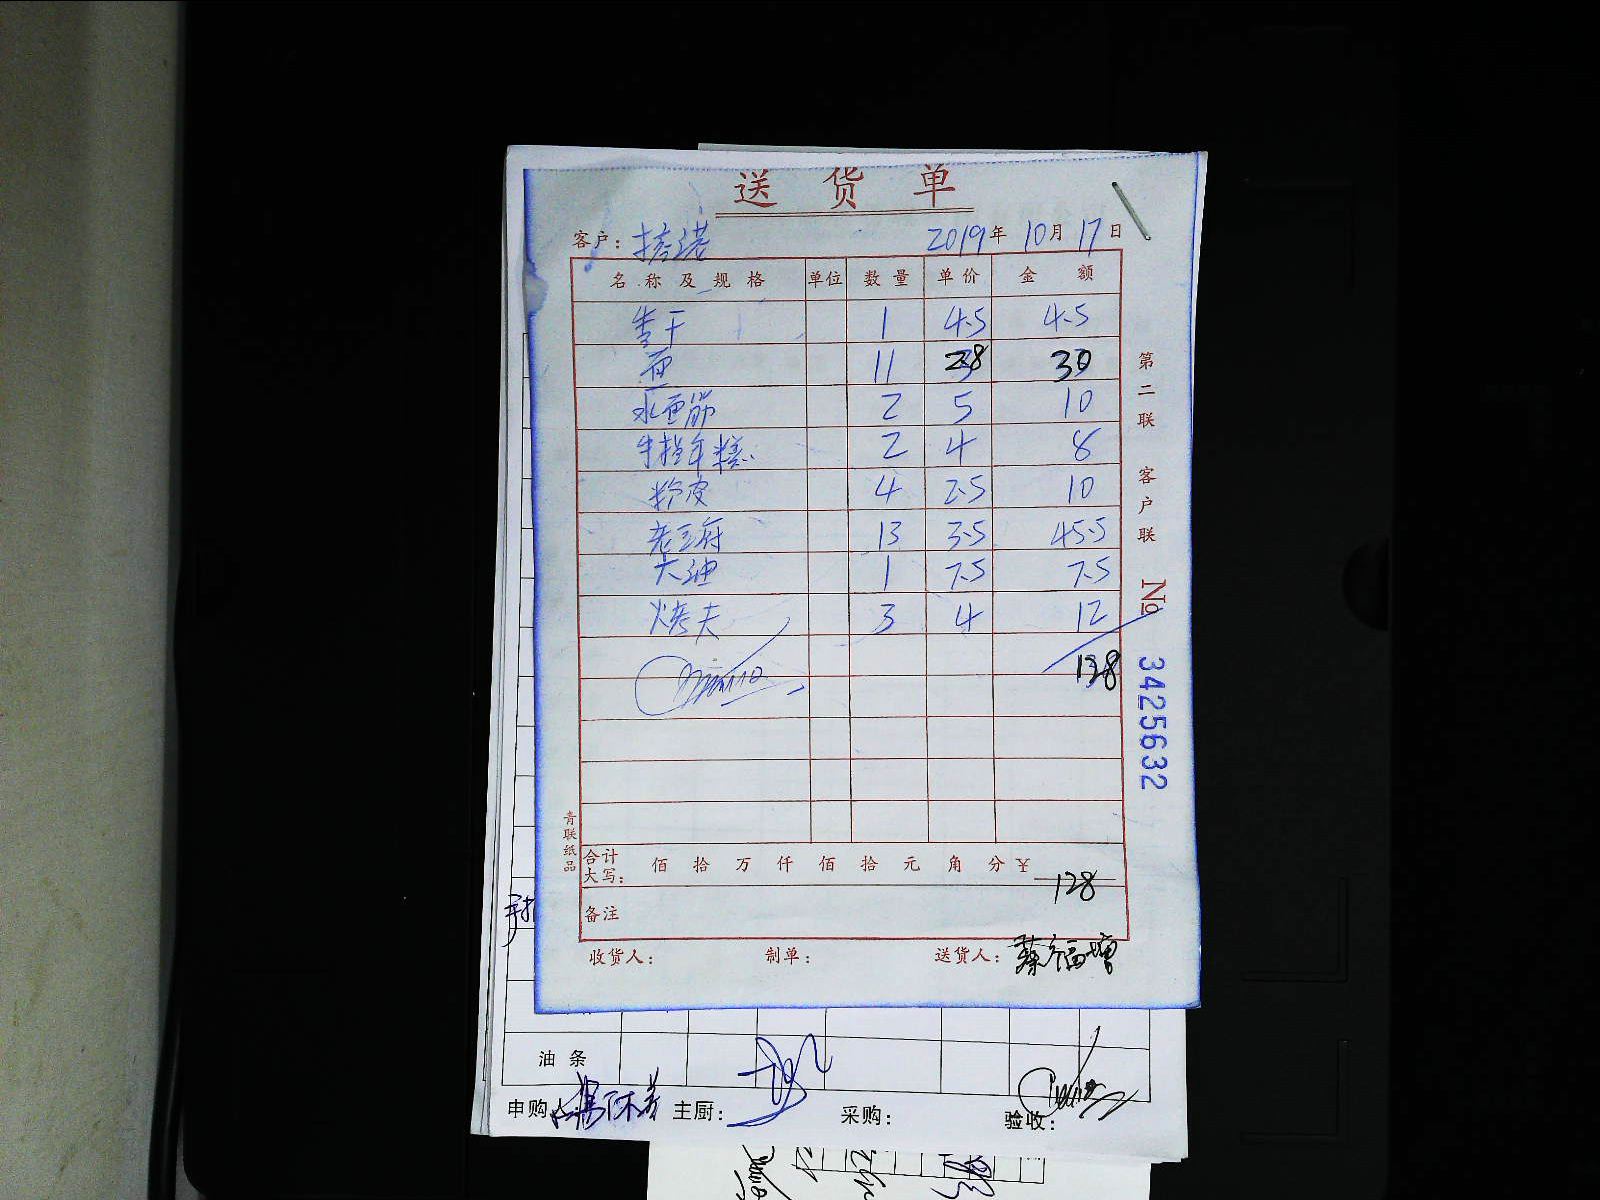 送货单
客户：
2019年10月17日
名称及规格 单位 数量 单价 金额
1 4.5 4.5
面 11 28 30
水面筋 2 5 10
年糕 2 4 8
粉皮 4 2.5 10
13 3.5 45.5
大油 1 7.5 7.5
烤夫 3 4 12
128
合计大写： 佰 拾 万 仟 佰 拾 元 角 分 ￥128
备注
收货人： 制单： 送货人：蔡福增
第二联 客户联
№ 3425632
青联纸品
油条
申购人： 主厨： 采购： 验收：